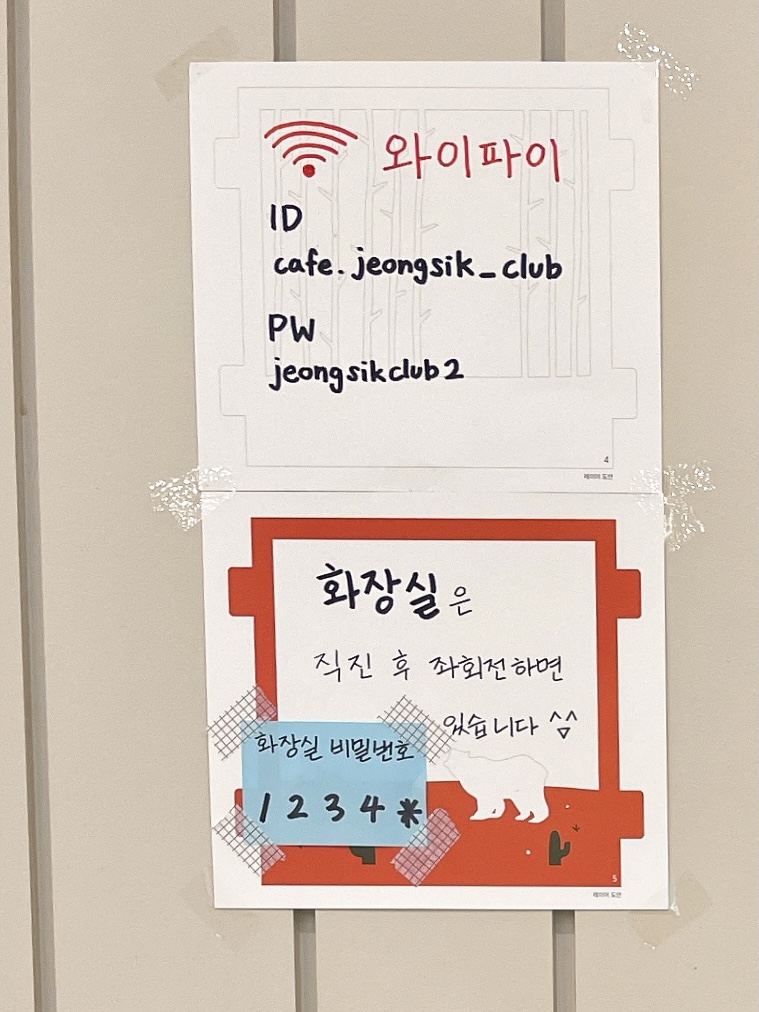 와이파이
ID
cafe.jeongsik_club
PW
jeongsikclub2
4
레이어 도안
화장실은
직진 후 좌회전하면
있습니다 ^^
화장실 비밀번호
1234*
5
레이어 도안